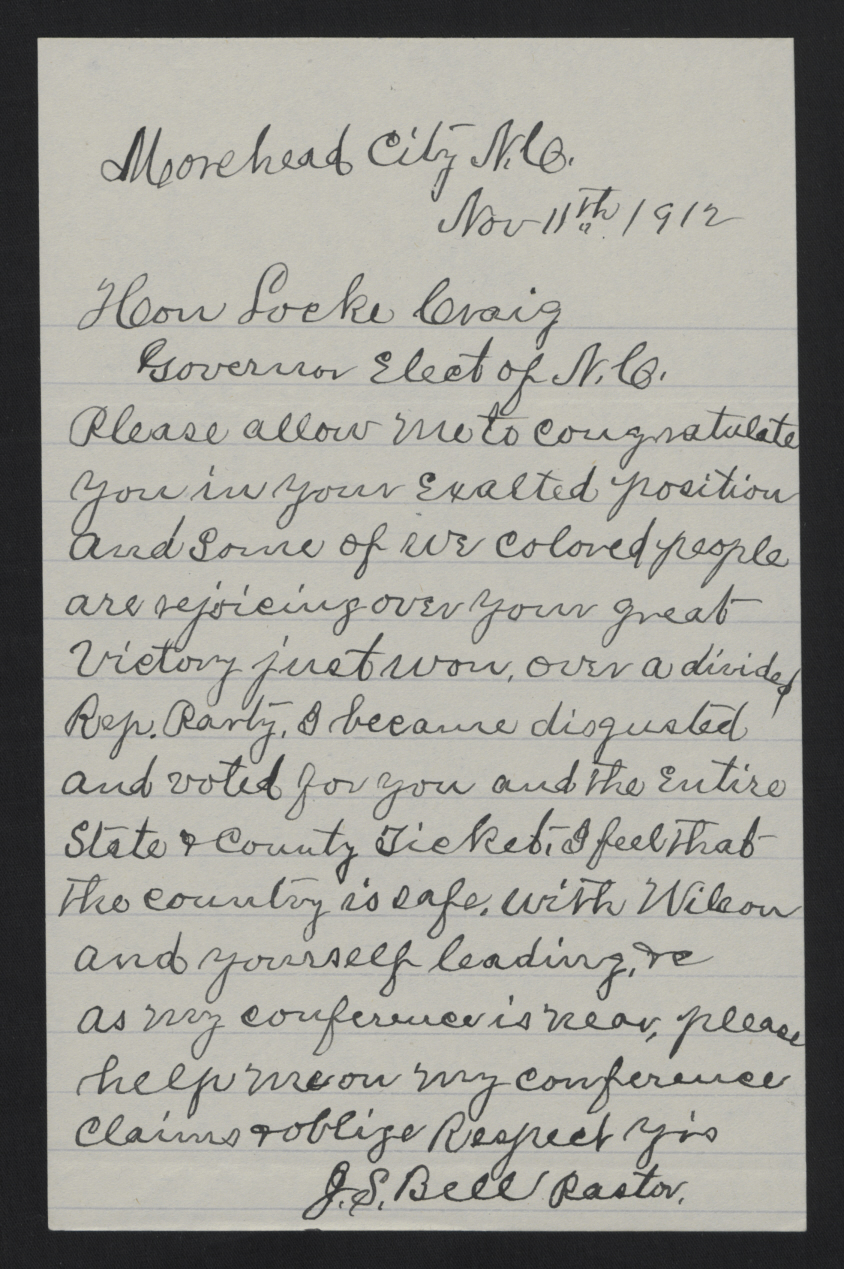 Morehead City N.C.
Nov 11th 1912
Hon Locke Craig
Governor Elect of N.C.
Please allow me to congratulate
you in your Exalted position
and Some of we colored people
are rejoicing over your great
Victory just won, over a divided
Rep. Party, I became disgusted
and voted for you and the Entire
State & County Ticket, I feel that
the country is safe, with Wilson
and yourself leading, &c
as my conference is near, please
help me on my conference
Claims & oblige Respect yrs
J. S. Bell Pastor.